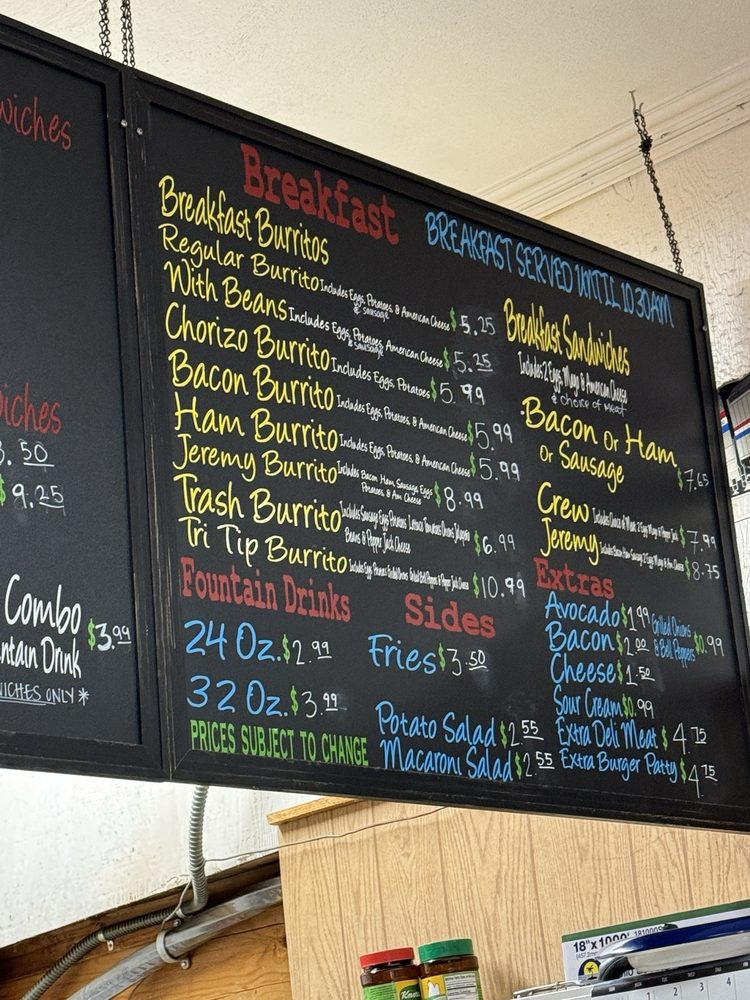 wiches
wiches
3.50
$9.25
Combo
ntain Drink $3.99
WICHES ONLY*
Breakfast
BREAKFAST SERVED UNTIL 10 30AM
Breakfast Burritos
Regular Burrito Includes Eggs, Potatoes, & American Cheese $5.25
& SAUSAGE
With Beans Includes Eggs, Potatoes, American Cheese $5.25
& SAUSAGE
Chorizo Burrito Includes Eggs, Potatoes $5.99
Bacon Burrito Includes Eggs, Potatoes, & American Cheese $5.99
Ham Burrito Includes Eggs, Potatoes, & American Cheese $5.99
Jeremy Burrito Includes Bacon, Ham, Sausage, Eggs
Potatoes, & Am Cheese $8.99
Trash Burrito Includes Sausage Eggs Potatoes Lettuce Tomatoes Onions Jalapeño
Beans & Pepper Jack Cheese $6.99
Tri Tip Burrito Includes Eggs Potatoes Grilled Onions Grilled Bell Peppers & Pepper Jack Cheese $10.99
Breakfast Sandwiches
Includes 2 Eggs, Mayo & American Cheese
& CHOICE OF MEAT
Bacon Or Ham
Or Sausage $7.65
Crew Includes Choice of Meat 2 Eggs Mayo & Pepper Jack $7.99
Jeremy Includes Bacon Ham Sausage 2 Eggs Mayo & Am Cheese $8.75
Fountain Drinks
24 Oz. $2.99
32 Oz. $3.99
PRICES SUBJECT TO CHANGE
Sides
Fries $3.50
Potato Salad $2.55
Macaroni Salad $2.55
Extras
Avocado $1.99
Bacon $2.00
Grilled Onions
& Bell Peppers $0.99
Cheese $1.50
Sour Cream $0.99
Extra Deli Meat $4.75
Extra Burger Patty $4.75
Knorr
18"x1000'